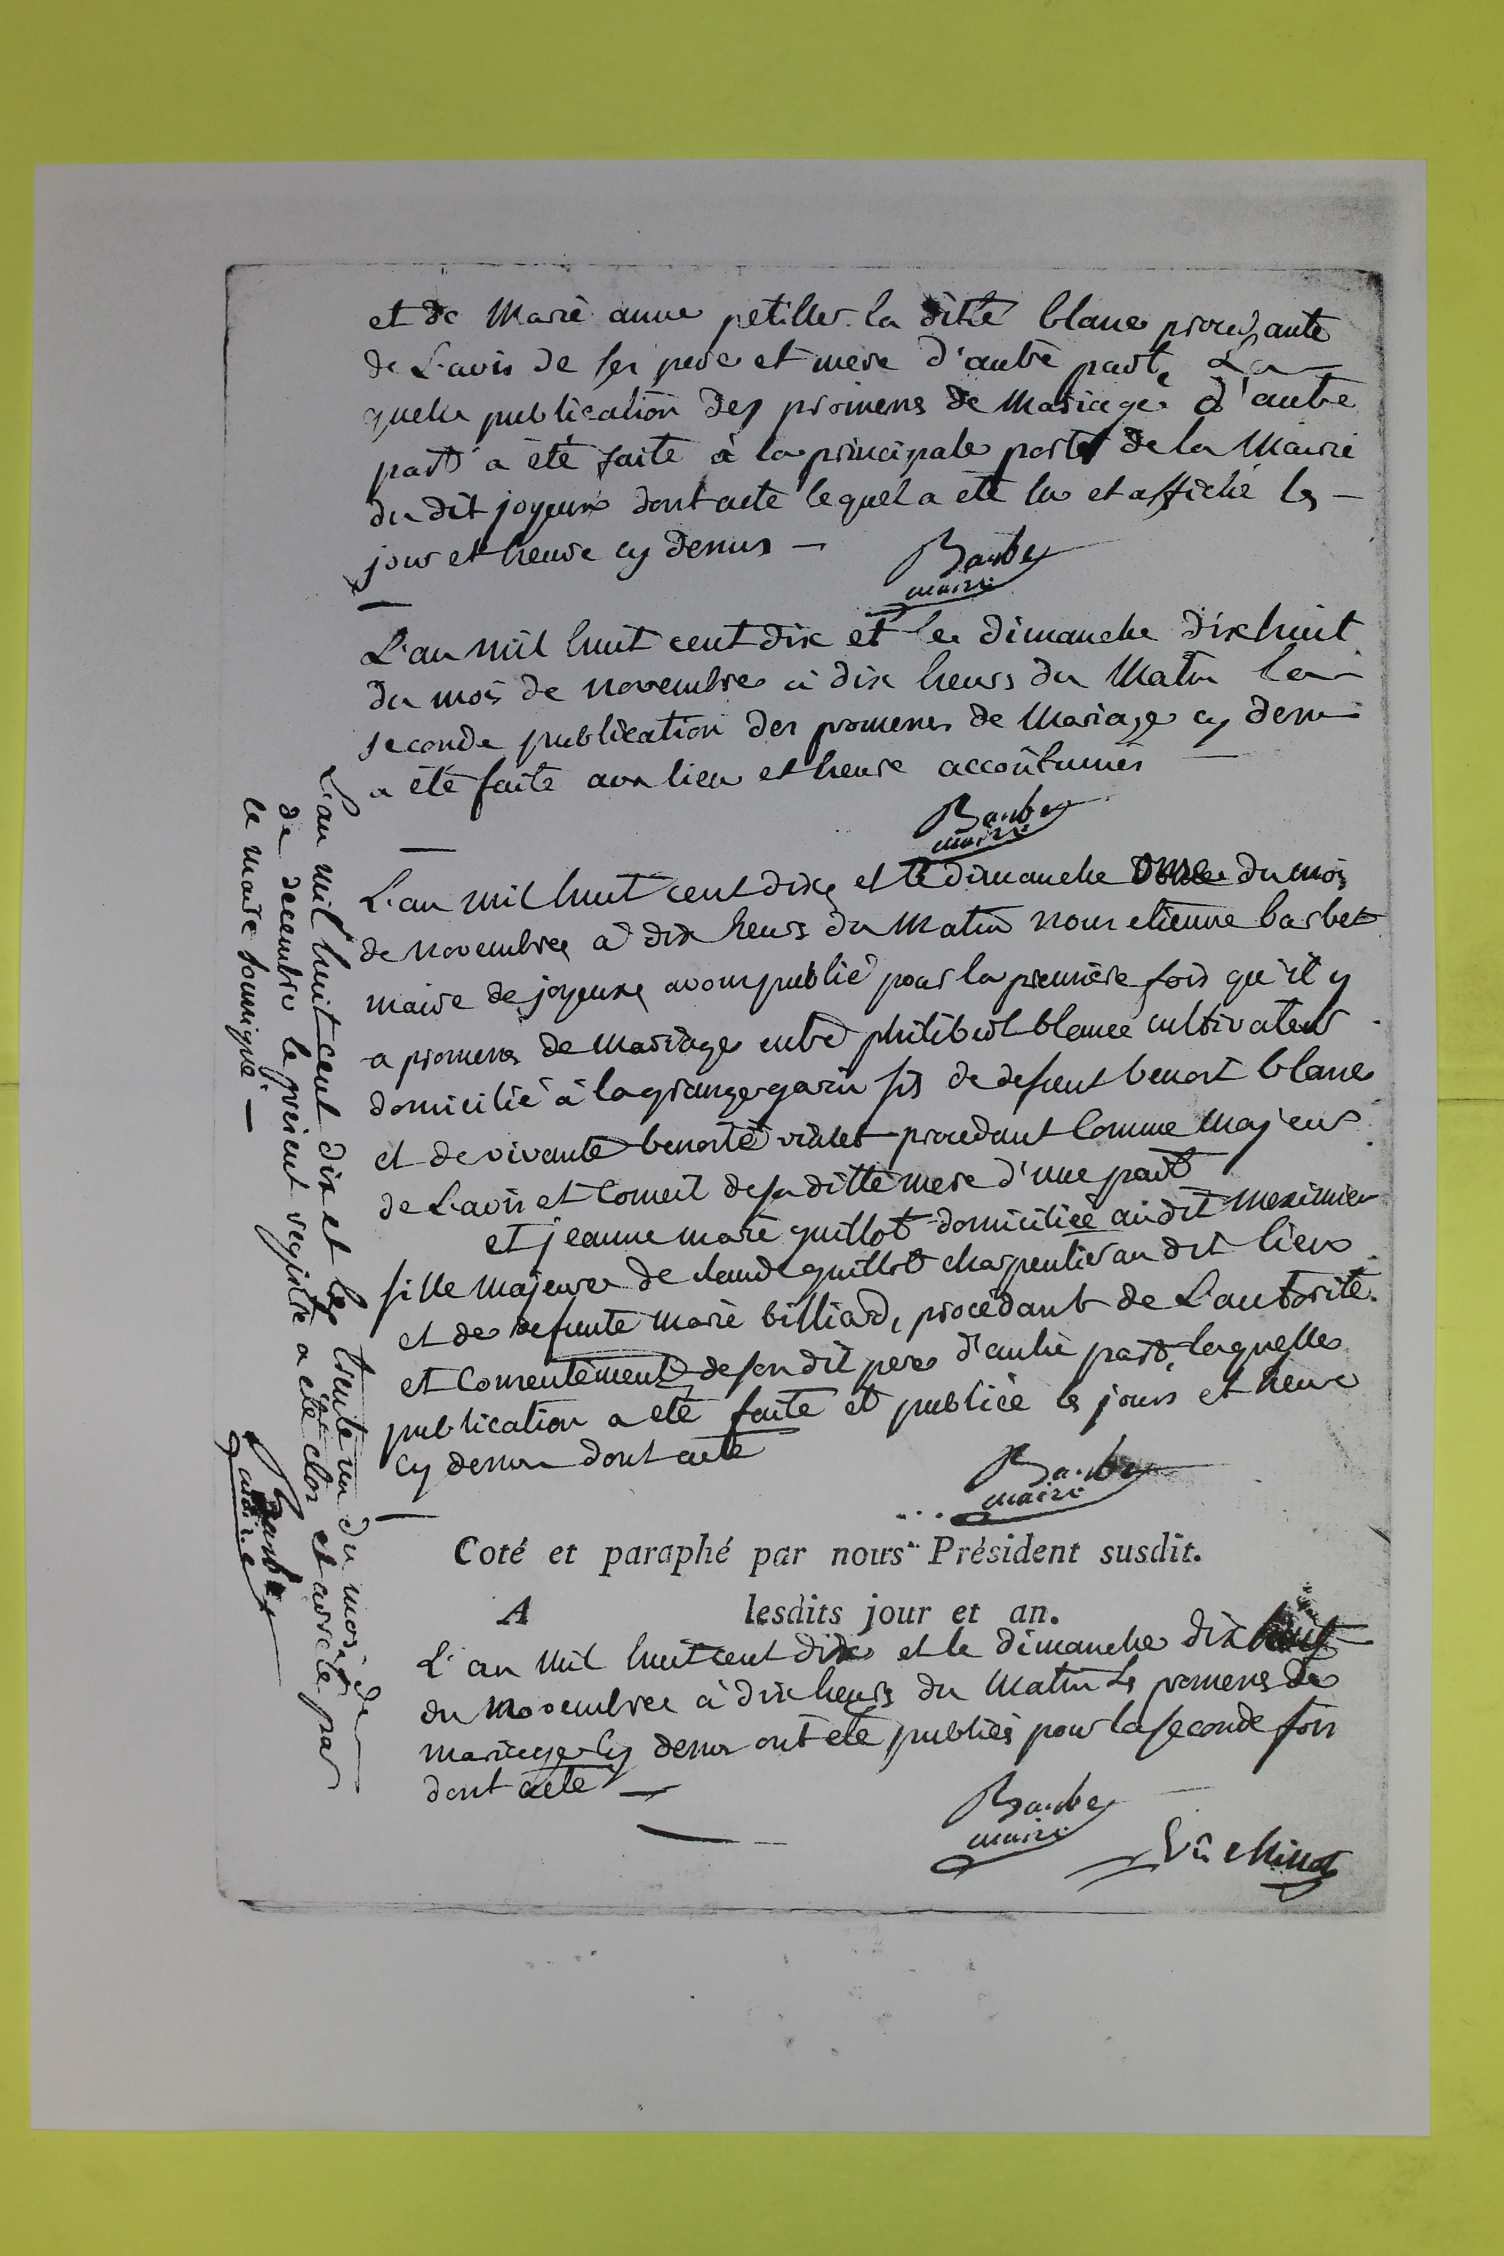 et de Marie anne petiller la ditte blanc procedante
de L'avis de ses pere et mere d'autre part, La
quelle publication des promesses de Mariage d'autre
part a été faite à la principale porte de la Mairie
du dit joyeux dont acte lequel a été lu et affiché les
jour et heure cy dessus —
Barbet
maire
L'an mil huit cent dix et le dimanche dixhuit
du mois de novembre à dix heurs du Matin la
seconde publication des promesses de Mariage cy dessus
a été faite aux lieu et heure accoûtumés —
Barbet
maire
L'an mil huit cent dix et le dimanche onze du mois
de novembre à dix heurs du Matin nous etienne barbet
maire de joyeux avons publié pour la première fois qu'il y
a promesses de Mariage entre philibert blanc cultivateur
domicilié à la grange garin fils de defunt benoit blanc
et de vivante benoite violet procedant Comme Majeur
de L'avis et Conseil de sa ditte mere d'une part
et jeanne marie guillot domiciliée audit meximieu
fille majeure de claude guillot charpentier au dit lieu
et de defunte marie billiard, procédant de L'autorité
et Consentement de son dit pere d'autre part, laquelle
publication a été faite et publiée les jours et heure
cy dessus dont acte
Barbet
maire
Coté et paraphé par nous Président susdit.
A lesdits jour et an.
L'an Mil huit cent dix et le dimanche dix huit
du Novembre à dix heurs du Matin Les promesses de
mariage Cy dessus ont été publiées pour la seconde fois
dont acte —
Barbet
maire
L'an mil huit cent dix et les trente un du mois de
de decembre le présent registre a été clos et arreté par
le maire soussigné —
Barbet
maire